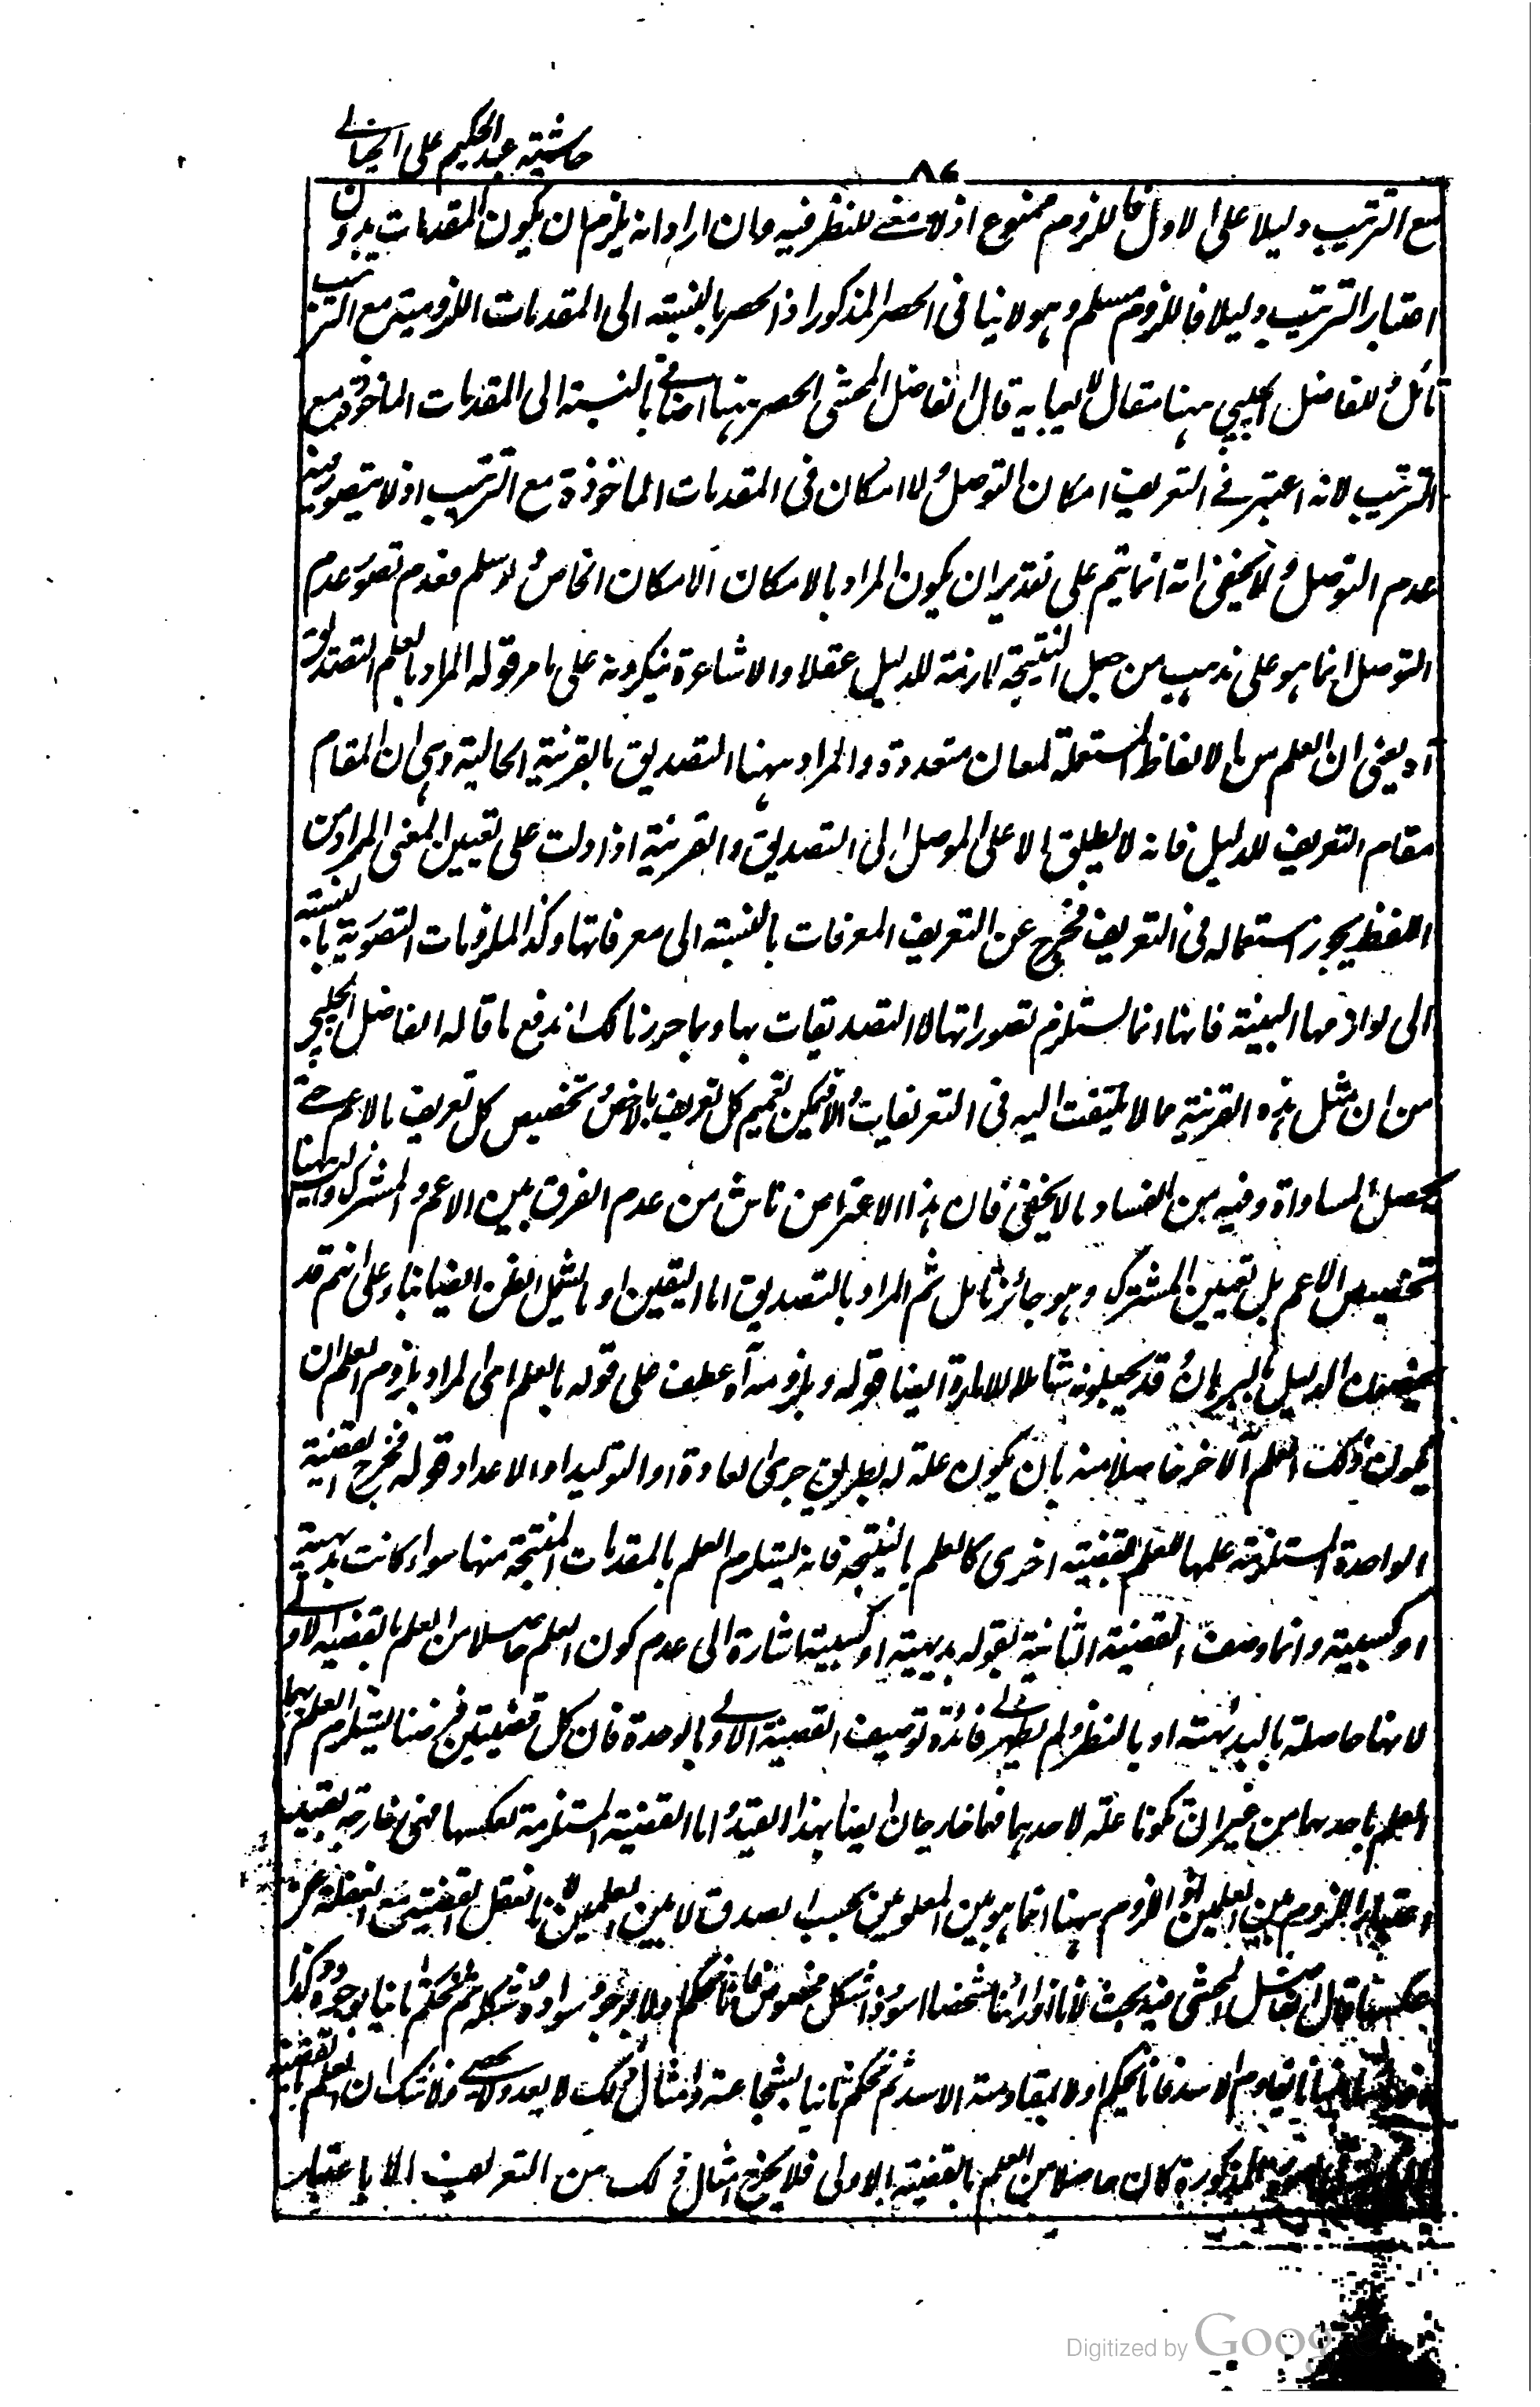 حاشية عبد الحكيم على الخيالي
٨٦
مع الترتيب دليلا على الاول فاللزوم ممنوع اذ لا معنى للنظر فيه وان اراد انه يلزم ان يكون المقدمات بدون
اعتبار الترتيب دليلا فاللزوم مسلم وهو لا ينافى الحصر المذكور اذ الحصر بالنسبة الى المقدمات اللزومية مع الترتيب
تأمل وللفاضل الچلپي ههنا مقال لا يعبأ به قال الفاضل المحشى الحصر ههنا اضافي بالنسبة الى المقدمات الماخوذة مع
الترتيب لانه اعتبر في التعريف امكان التوصل ولا امكان فى المقدمات الماخوذة مع الترتيب اذ لا يتصور فيه
عدم التوصل ولا يخفى انه انما يتم على تقدير ان يكون المراد بالامكان الامكان الخاص ولو سلم فعدم تصور عدم
التوصل انما هو على مذهب من جعل النتيجة لازمة للدليل عقلا والاشاعرة ينكرونه على ما مر قوله المراد بالعلم التصديق
آه يعنى ان العلم من الالفاظ المستعملة لمعان متعددة والمراد ههنا التصديق بالقرينة الحالية وهى ان المقام
مقام التعريف للدليل فانه لا يطلق الا على الموصل الى التصديق والقرينة اذا دلت على تعيين المعنى المراد من
اللفظ يجوز استعماله فى التعريف فخرج عن التعريف المعرفات بالنسبة الى معرفاتها وكذا الملزومات التصورية بالنسبة
الى لوازمها البينة فانها انما يستلزم تصوراتها لا التصديقات بها وبما حررنا لك اندفع ما قاله الفاضل الچلپي
من ان مثل هذه القرينة مما لا يلتفت اليه فى التعريفات والا فيمكن تعميم كل تعريف بالاخص وتخصيص كل تعريف بالاعم حتى
يحصل المساواة وفيه من الفساد ما لا يخفى فان هذا الاعتراض ناش من عدم الفرق بين الاعم والمشترك وليس ههنا
تخصيص الاعم بل تعيين المشترك وهو جائز تأمل ثم المراد بالتصديق اما اليقين او ما يشمل الظن ايضا بناء على انهم قد
يخصون الدليل بالبرهان وقد يجعلونه شاملا للامارة ايضا قوله وبلزومه آه عطف على قوله بالعلم اى المراد بلزوم العلم ان
يكون ذلك العلم الآخر حاصلا منه بان يكون علة له بطريق جرى العادة او التوليد او الاعداد قوله فخرج القضية
الواحدة المستلزمة علمها للعلم بقضية اخرى كالعلم بالنتيجة فانه يستلزم العلم بالمقدمات المنتجة منها سواء كانت بديهية
او كسبية وانما وصف القضية الثانية بقوله بديهية او كسبية اشارة الى عدم كون العلم حاصلا من العلم بالقضية الاولى
لانها حاصلة بالبديهة او بالنظر ولم يظهر لي فائدة توصيف القضية الاولى بالوحدة فان كل قضيتين فرضنا يستلزم العلم بهما
العلم باحدهما من غير ان تكونا علة لاحدهما فهما خارجان ايضا بهذا القيد واما القضية المستلزمة لعكسها فهى خارجة بقيد
اعتبار اللزوم بين العلمين اذ اللزوم ههنا انما هو بين المعلومين بحسب الصدق لا بين العلمين لانا نعقل القضية مع الغفلة عن
عكسها قال الفاضل المحشى فيه بحث لانا اذا رأينا شخصا اسود ذا شكل مخصوص فانا نحكم اولا بوجود سواده وشكله ثم نحكم ثانيا بوجوده وكذا
يقاوم الاسد فانا نحكم اولا بمقاومته الاسد ثم نحكم ثانيا بشجاعته وامثال ذلك لا يعد ولا يحصى ولا شك ان العلم بالقضية
المذكورة كان حاصلا من العلم بالقضية الاولى فلا يخرج امثال ذلك من التعريف الا باعتبار
Digitized by Goog